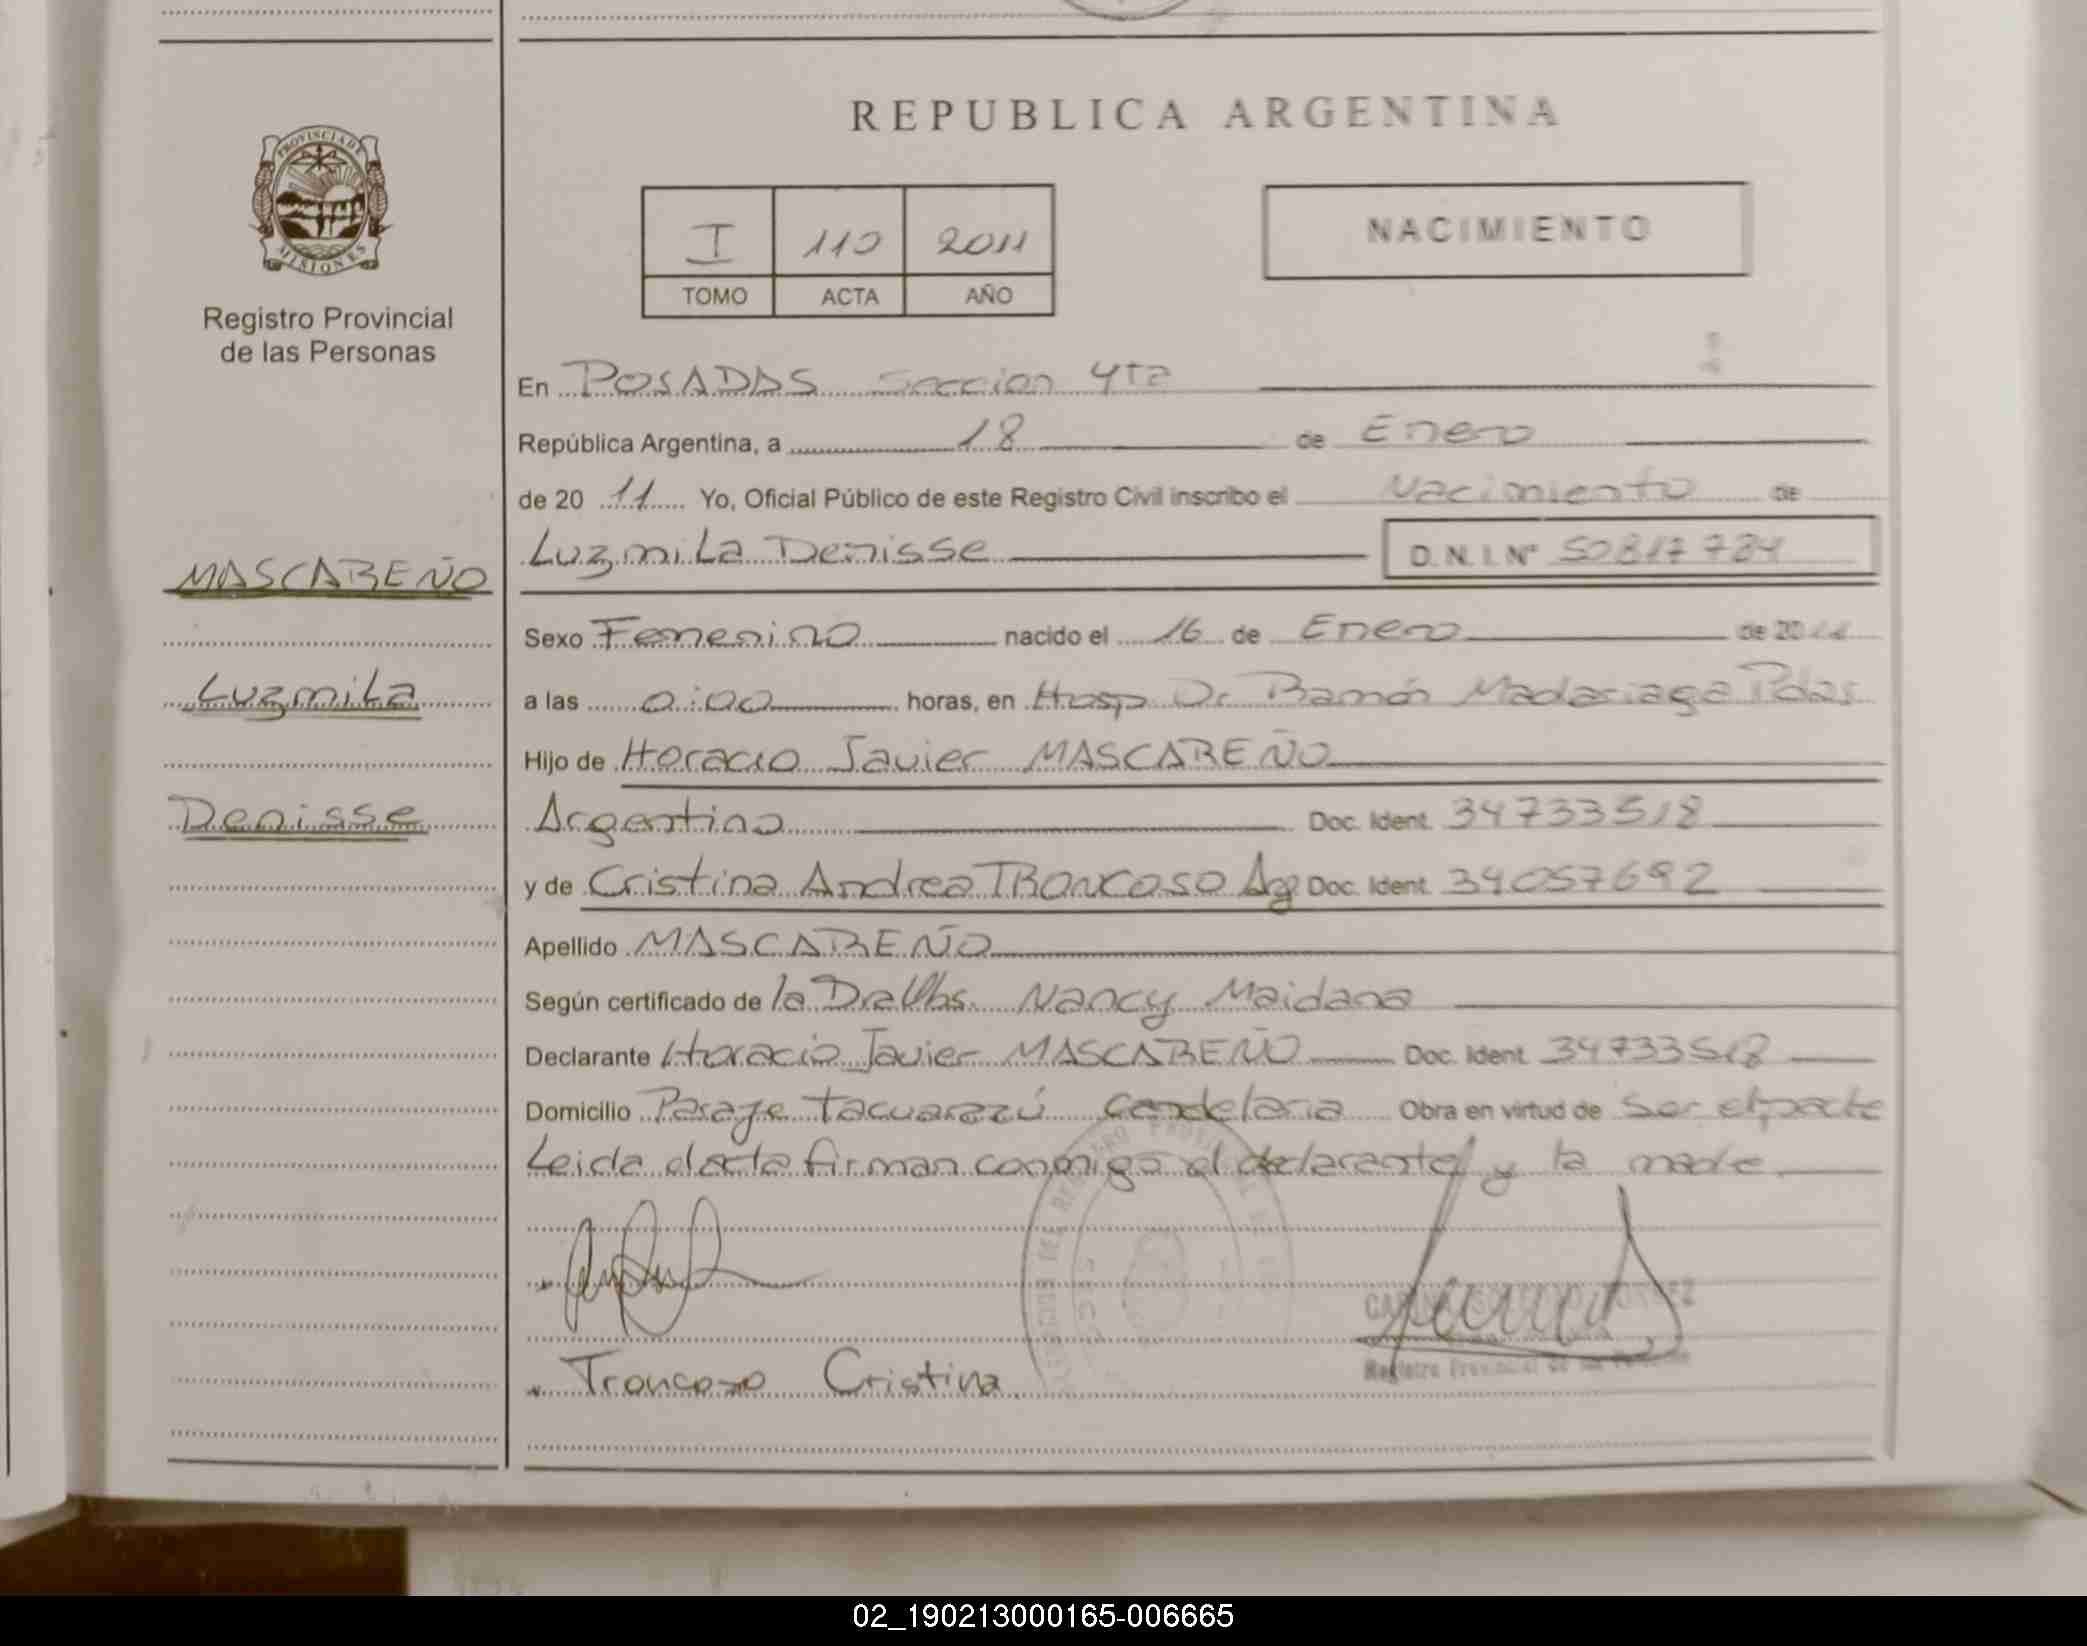 PROVINCIA DE
MISIONES
Registro Provincial
de las Personas
MASCAREÑO
Luzmila
Denisse
REPUBLICA ARGENTINA
I 110 2011
TOMO ACTA AÑO
NACIMIENTO
En POSADAS Seccion 4ta
República Argentina, a 18 de Enero
de 20 11 Yo, Oficial Público de este Registro Civil inscribo el Nacimiento de
Luzmila Denisse D.N.I.Nº 50817784
Sexo Femenino nacido el 16 de Enero de 2011
a las 0:00 horas, en Hosp Dr. Ramón Madariaga Pdas
Hijo de Horacio Javier MASCAREÑO
Argentino Doc. Ident. 34733518
y de Cristina Andrea TRONCOSO Arg Doc. Ident. 34057692
Apellido MASCAREÑO
Según certificado de la Dra Nancy Maidana
Declarante Horacio Javier MASCAREÑO Doc. Ident. 34733518
Domicilio Paraje Tacuarazú Candelaria Obra en virtud de Ser el padre
Leida el acta firman conmigo el declarante y la madre
Registro Provincial de las Personas
Troncoso Cristina
02_190213000165-006665